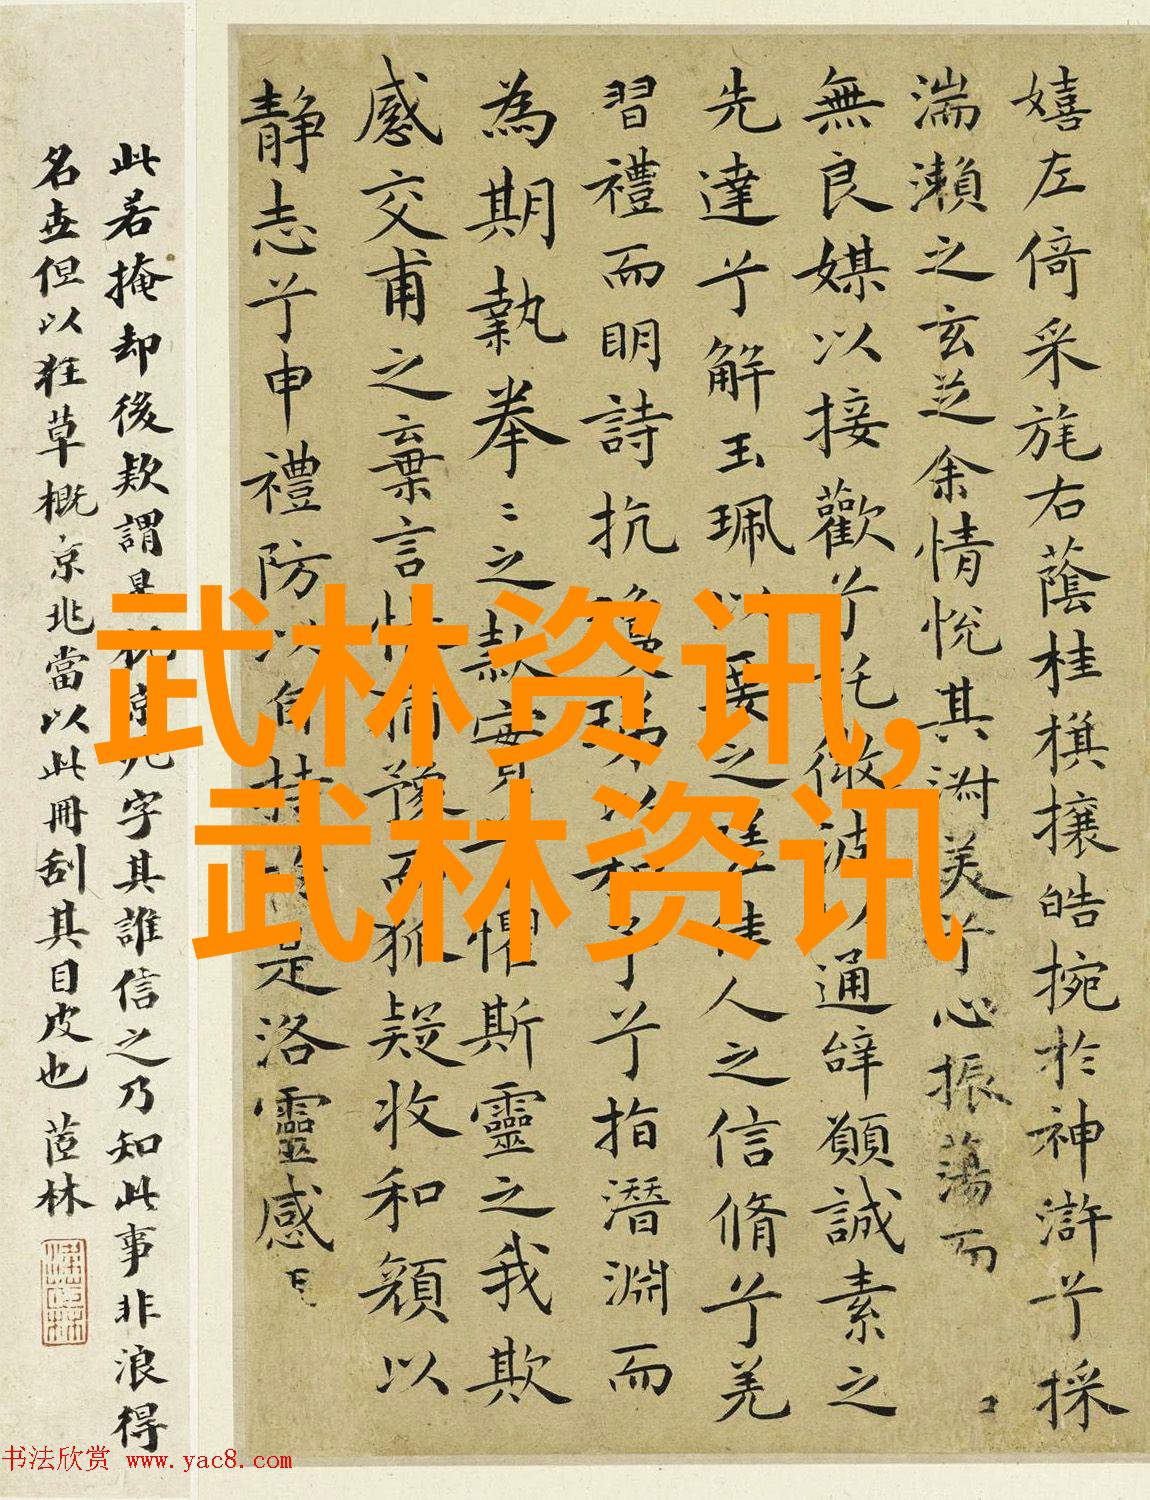 嬉左倚采旄右蔭桂棋攘皓捥於神滸兮採
湍瀨之玄芝余情悅其淑美兮心振蕩而
無良媒以接歡兮託微波以通辭願誠素之
先達兮解玉珮以要之嗟佳人之信脩兮羌
習禮而明詩抗瓊珶以和予兮指潛淵而
為期執拳〻之款實兮懼斯靈之我欺
感交甫之棄言悵猶豫而狐疑收和顏以
静志兮申禮防以自持於是洛靈感
此若掩却後款謂是楊京兆字其誰信之乃知此事非浪得
名也但以狂草概京兆當以此冊刮其目皮也 茝林
武林资讯,
武林资讯
书法欣赏 www.yac8.com